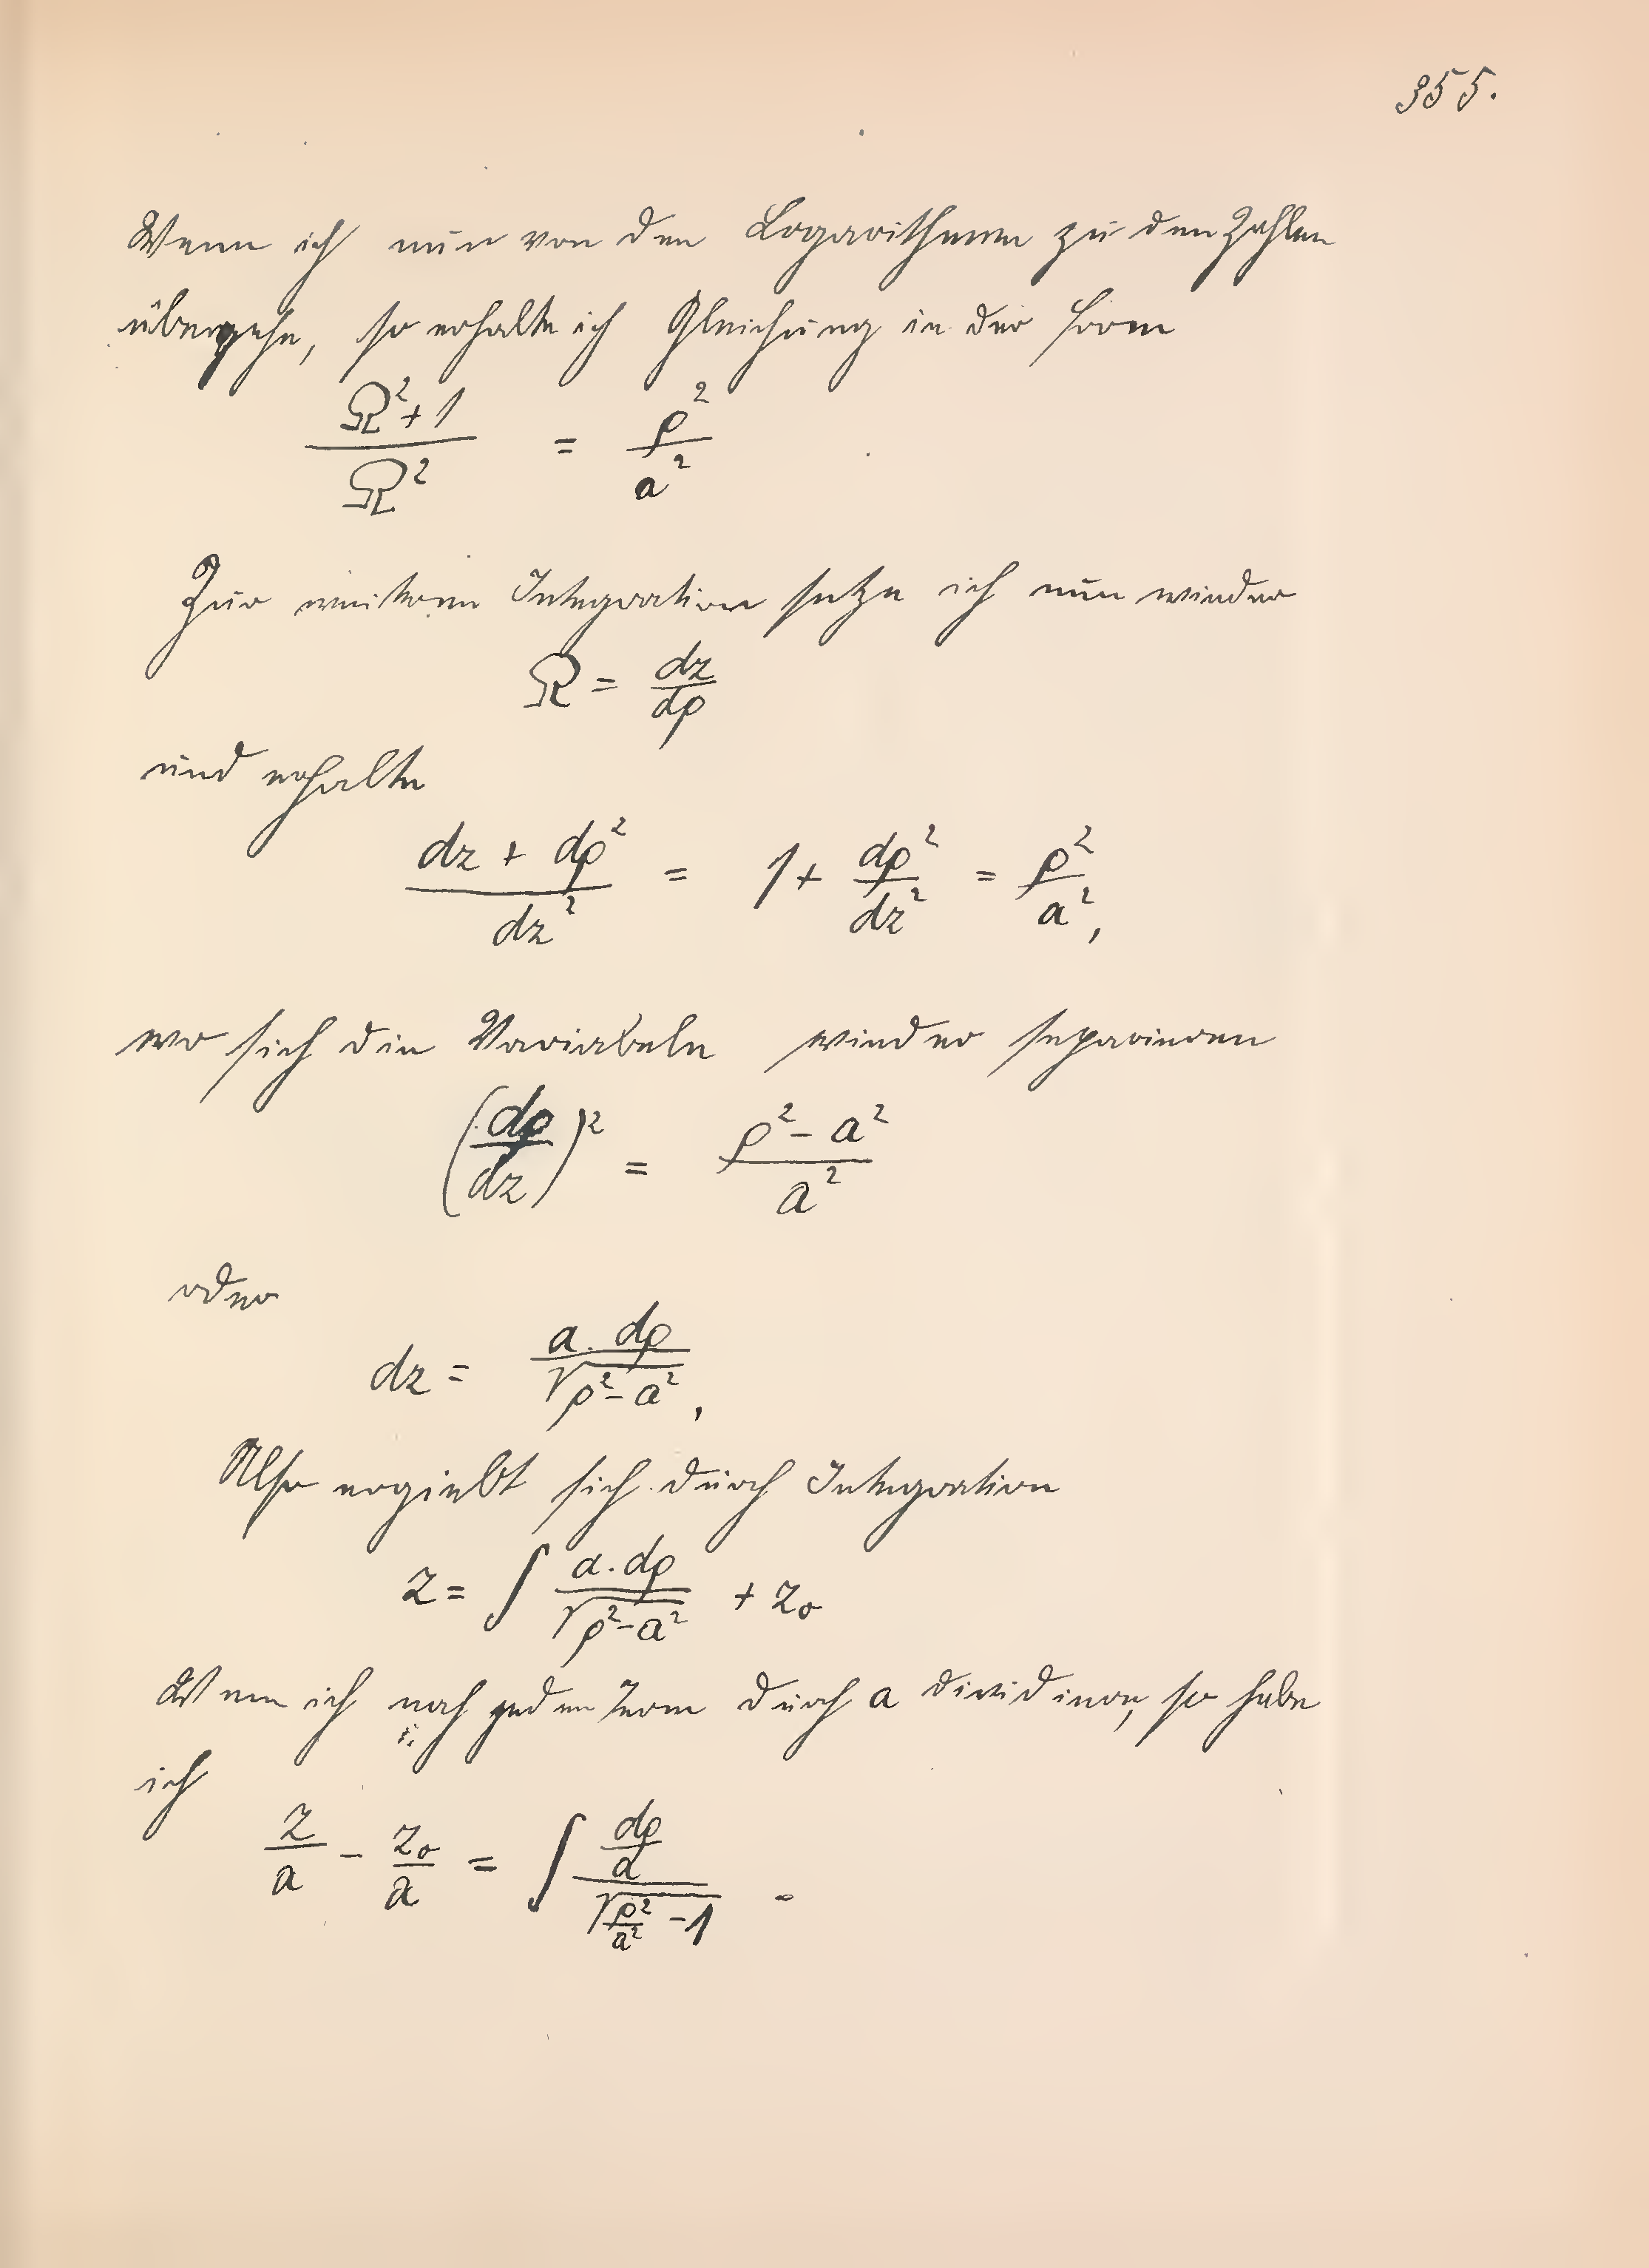 355.
Wenn ich nun von den Logarithmen zu den Zahlen
übergehe, so erhalte ich Gleichung in der Form
\frac{Ω²+1}{Ω²} = \frac{ρ²}{a²}
Zur weitern Integration setze ich nun wieder
Ω = \frac{dz}{dρ}
und erhalte
\frac{dz + dρ²}{dz²} = 1 + \frac{dρ²}{dz²} = \frac{ρ²}{a²},
wo sich die Variabeln wieder separieren
(\frac{dρ}{dz})² = \frac{ρ² - a²}{a²}
oder
dz = \frac{a. dρ}{\sqrt{ρ² - a²}},
Also ergiebt sich durch Integration
z = ∫ \frac{a. dρ}{\sqrt{ρ² - a²}} + z₀
Wenn ich noch jeden Term durch a dividiere, so habe
ich
\frac{z}{a} - \frac{z₀}{a} = ∫ \frac{\frac{dρ}{a}}{\sqrt{\frac{ρ²}{a²} - 1}} .